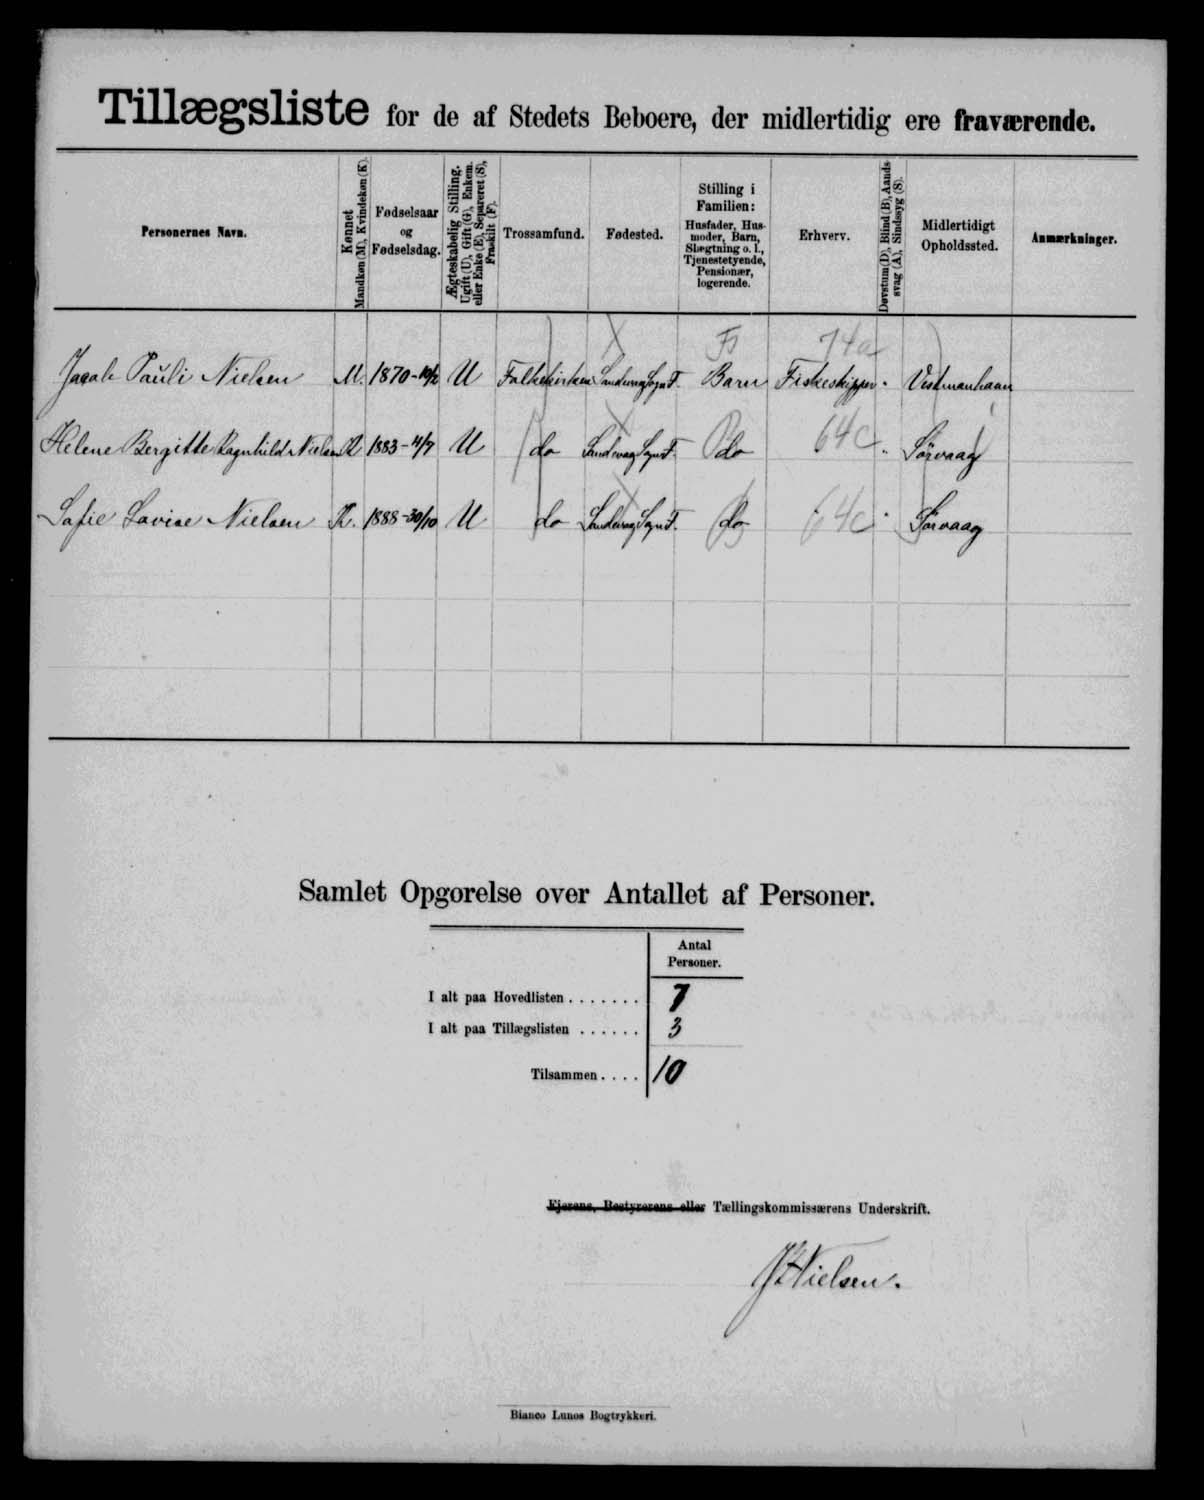 Tillægsliste for de af Stedets Beboere, der midlertidig ere fraværende.
Personernes Navn.
Kønnet
Mandkøn (M), Kvindekøn (K).
Fødselsaar
og
Fødselsdag.
Ægteskabelig Stilling.
Ugift (U), Gift (G), Enkem.
eller Enke (E), Separeret (S),
Fraskilt (F).
Trossamfund.
Fødested.
Stilling i
Familien:
Husfader, Hus-
moder, Barn,
Slægtning o. l.,
Tjenestetyende,
Pensionær,
logerende.
Erhverv.
Døvstum (D), Blind (B), Aands-
svag (A), Sindssyg (S).
Midlertidigt
Opholdssted.
Anmærkninger.
74a
Jacob Pauli Nielsen M. 1870-10/2 U Folkekirken Sandevaag Sogn F. Barn Fiskeskipper Vestmanhavn
Helene Bergitte Ragnhild Nielsen K 1883-11/7 U do Sandevaag Sogn F. do 64c Sørvaag
Sofie Lovise Nielsen K. 1888-30/10 U do Sandevaag Sogn F. do 64c Sørvaag
Samlet Opgørelse over Antallet af Personer.
Antal
Personer.
I alt paa Hovedlisten . . . . . . . 7
I alt paa Tillægslisten . . . . . . 3
Tilsammen . . . . 10
Ejerens, Bestyrerens eller Tællingskommissærens Underskrift.
Nielsen.
Bianco Lunos Bogtrykkeri.